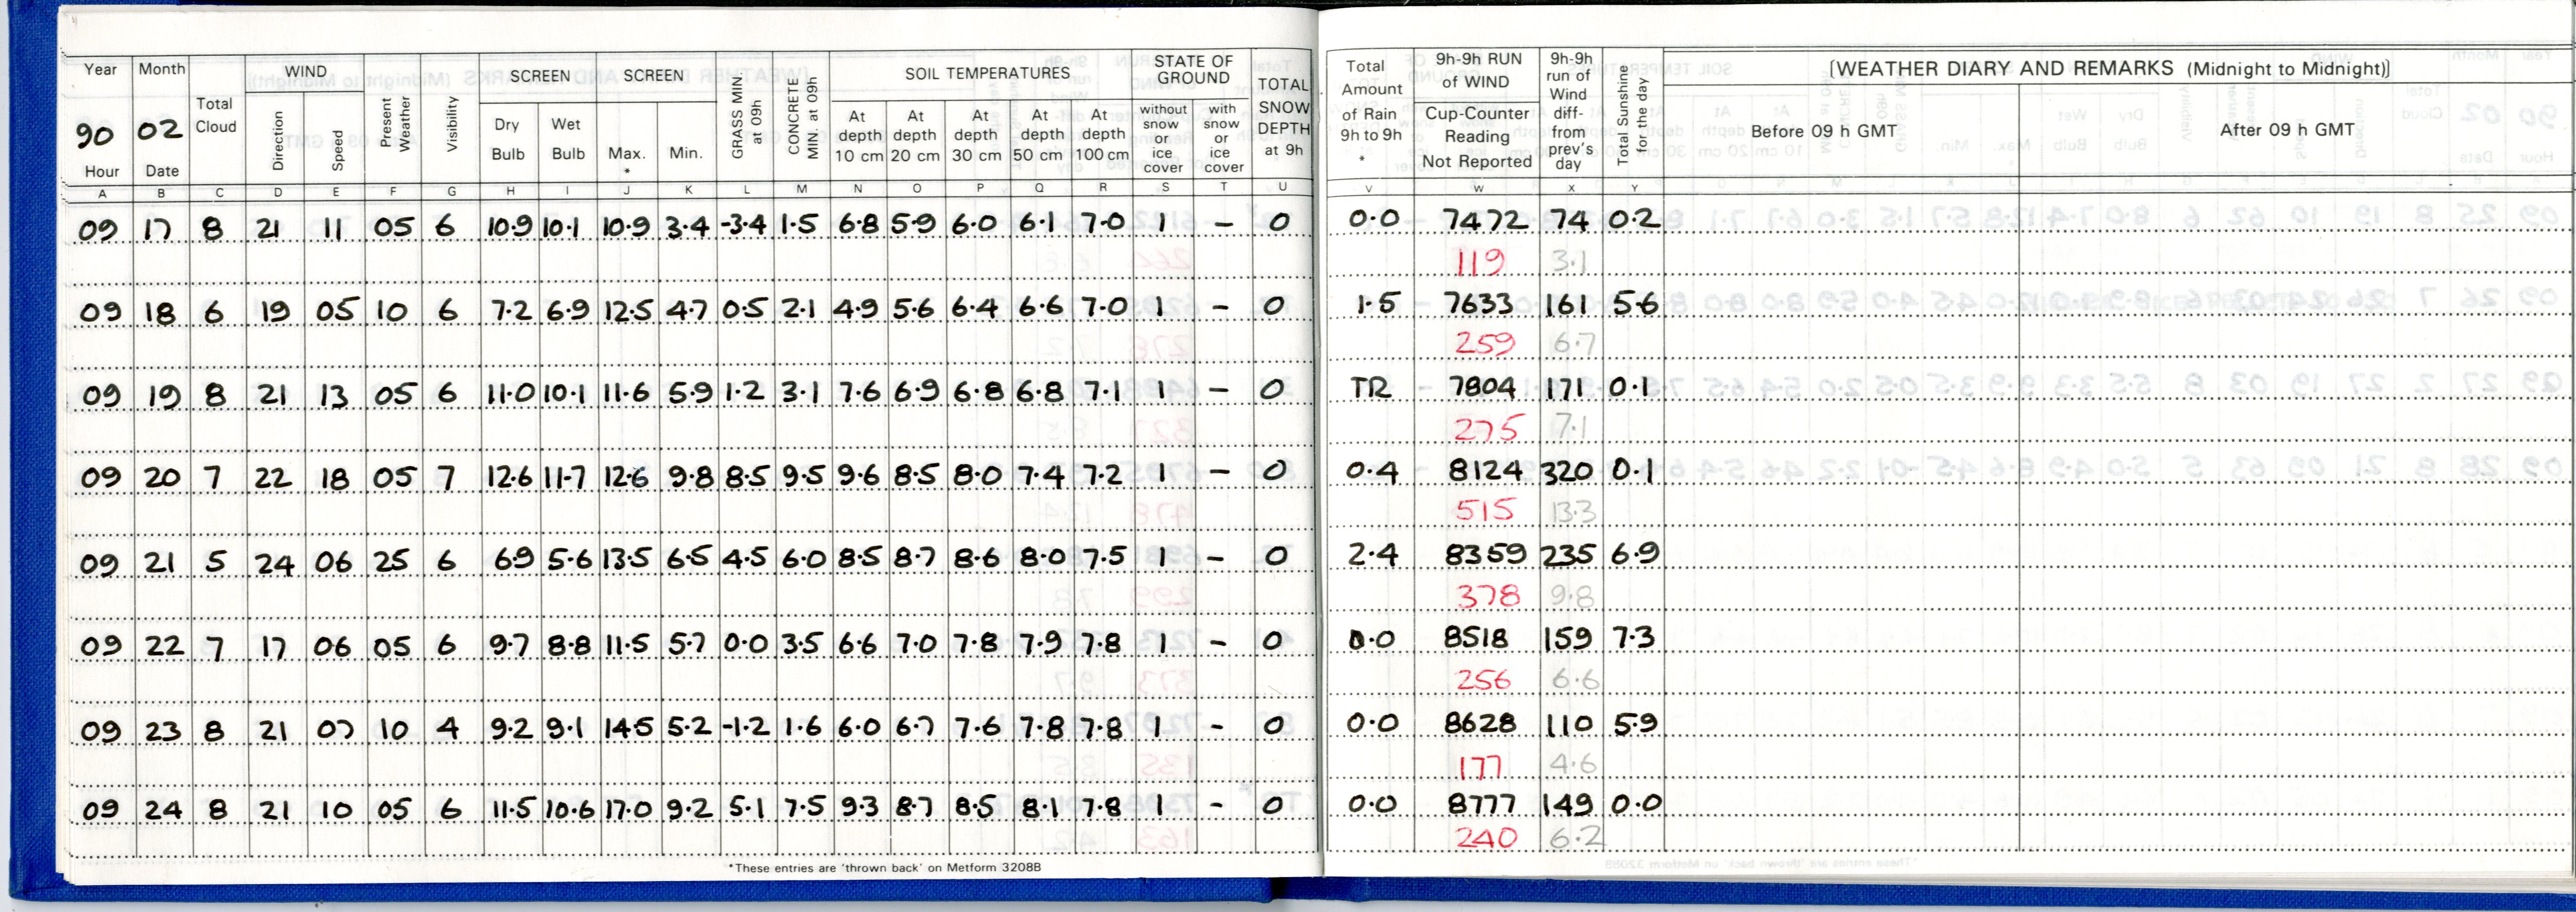 Year Month Total Cloud WIND Present Weather Visibility SCREEN SCREEN GRASS MIN at 09h CONCRETE MIN. at 09h SOIL TEMPERATURES STATE OF GROUND TOTAL SNOW DEPTH at 9h Total Amount of Rain 9h to 9h * 9h-9h RUN of WIND 9h-9h run of Wind diff- from prev's day Total Sunshine for the day [WEATHER DIARY AND REMARKS (Midnight to Midnight)]
90 02 Direction Speed Dry Bulb Wet Bulb Max. * Min. At depth 10 cm At depth 20 cm At depth 30 cm At depth 50 cm At depth 100 cm without snow or ice cover with snow or ice cover Cup-Counter Reading Not Reported Before 09 h GMT After 09 h GMT
Hour Date
A B C D E F G H I J K L M N O P Q R S T U V W X Y
09 17 8 21 11 05 6 10.9 10.1 10.9 3.4 -3.4 1.5 6.8 5.9 6.0 6.1 7.0 1 – 0 0.0 7472 74 0.2
119 3.1
09 18 6 19 05 10 6 7.2 6.9 12.5 4.7 0.5 2.1 4.9 5.6 6.4 6.6 7.0 1 – 0 1.5 7633 161 5.6
259 6.7
09 19 8 21 13 05 6 11.0 10.1 11.6 5.9 1.2 3.1 7.6 6.9 6.8 6.8 7.1 1 – 0 TR 7804 171 0.1
275 7.1
09 20 7 22 18 05 7 12.6 11.7 12.6 9.8 8.5 9.5 9.6 8.5 8.0 7.4 7.2 1 – 0 0.4 8124 320 0.1
515 13.3
09 21 5 24 06 25 6 6.9 5.6 13.5 6.5 4.5 6.0 8.5 8.7 8.6 8.0 7.5 1 – 0 2.4 8359 235 6.9
378 9.8
09 22 7 17 06 05 6 9.7 8.8 11.5 5.7 0.0 3.5 6.6 7.0 7.8 7.9 7.8 1 – 0 0.0 8518 159 7.3
256 6.6
09 23 8 21 07 10 4 9.2 9.1 14.5 5.2 -1.2 1.6 6.0 6.7 7.6 7.8 7.8 1 – 0 0.0 8628 110 5.9
177 4.6
09 24 8 21 10 05 6 11.5 10.6 17.0 9.2 5.1 7.5 9.3 8.7 8.5 8.1 7.8 1 – 0 0.0 8777 149 0.0
240 6.2
*These entries are 'thrown back' on Metform 3208B